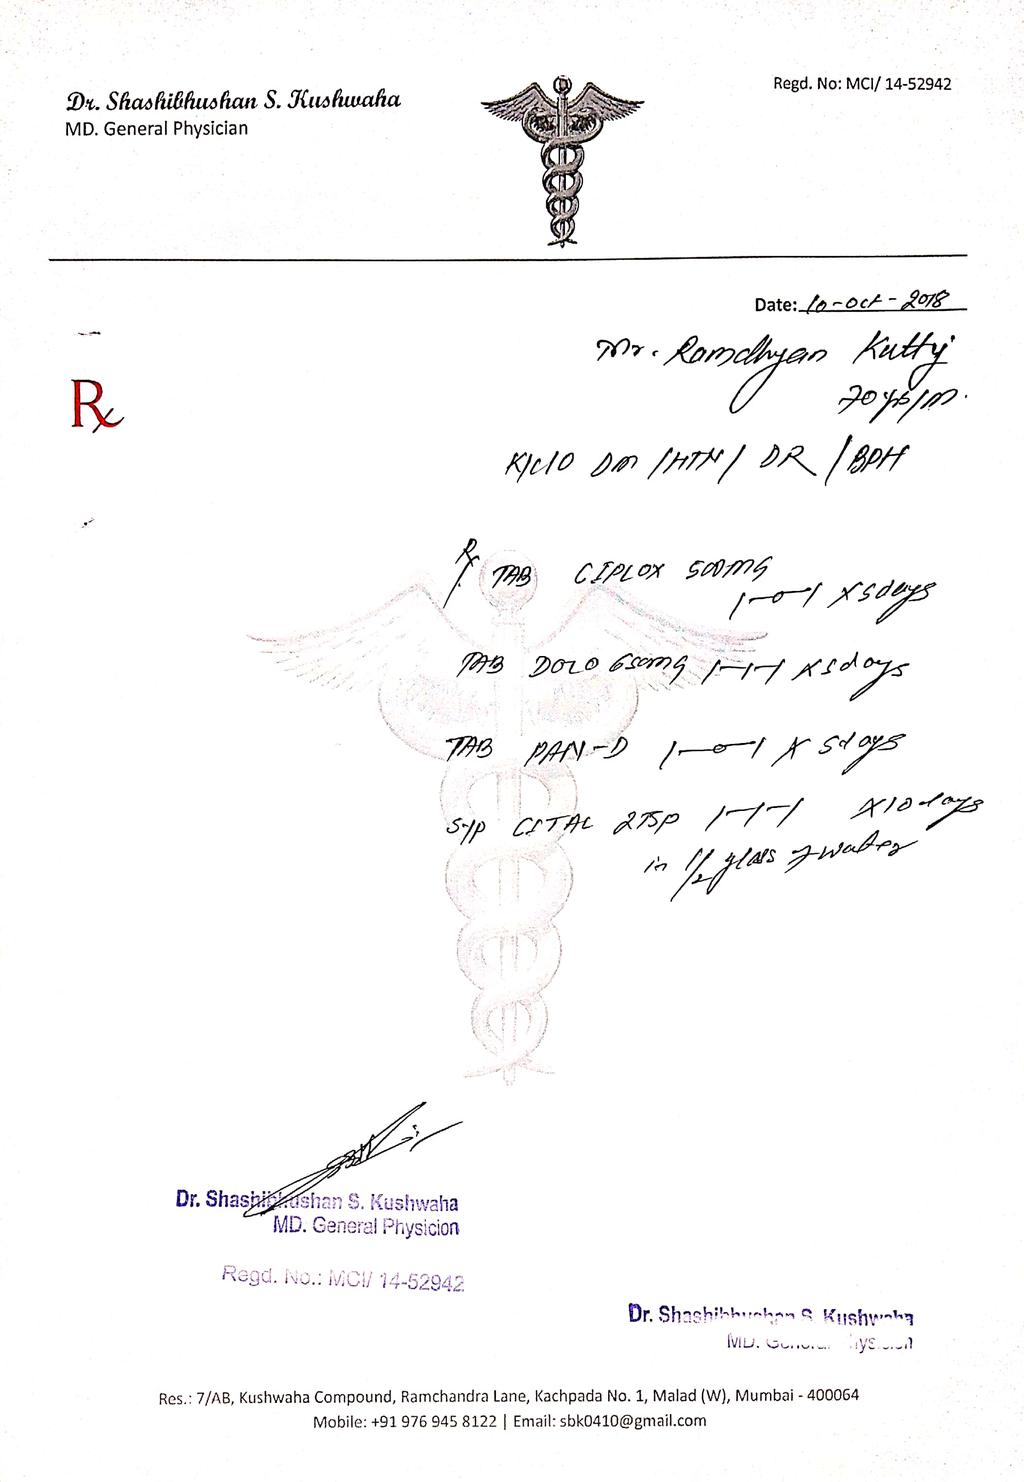 Dr. Shashibhushan S. Kushwaha
MD. General Physician
Regd. No: MCI/ 14-52942
Date: 10-Oct-2018
Mr. Ramdhyan Kutty
70 yrs/m.
Rx
K/c/o DM /HTN/ DR /BPH
Rx TAB CIPLOX 500mg
1-0-1 x 5 days
TAB DOLO 650mg 1-1-1 x 5 days
TAB PAN-D 1-0-1 x 5 days
Syp CITAL 2TSP 1-1-1 x 10 days
in 1/2 glass of water
Dr. Shashibhushan S. Kushwaha
MD. General Physicion
Regd. No.: MCI/ 14-52942
Dr. Shashibhushan S. Kushwaha
MD. General Physicion
Res.: 7/AB, Kushwaha Compound, Ramchandra Lane, Kachpada No. 1, Malad (W), Mumbai - 400064
Mobile: +91 976 945 8122 | Email: sbk0410@gmail.com